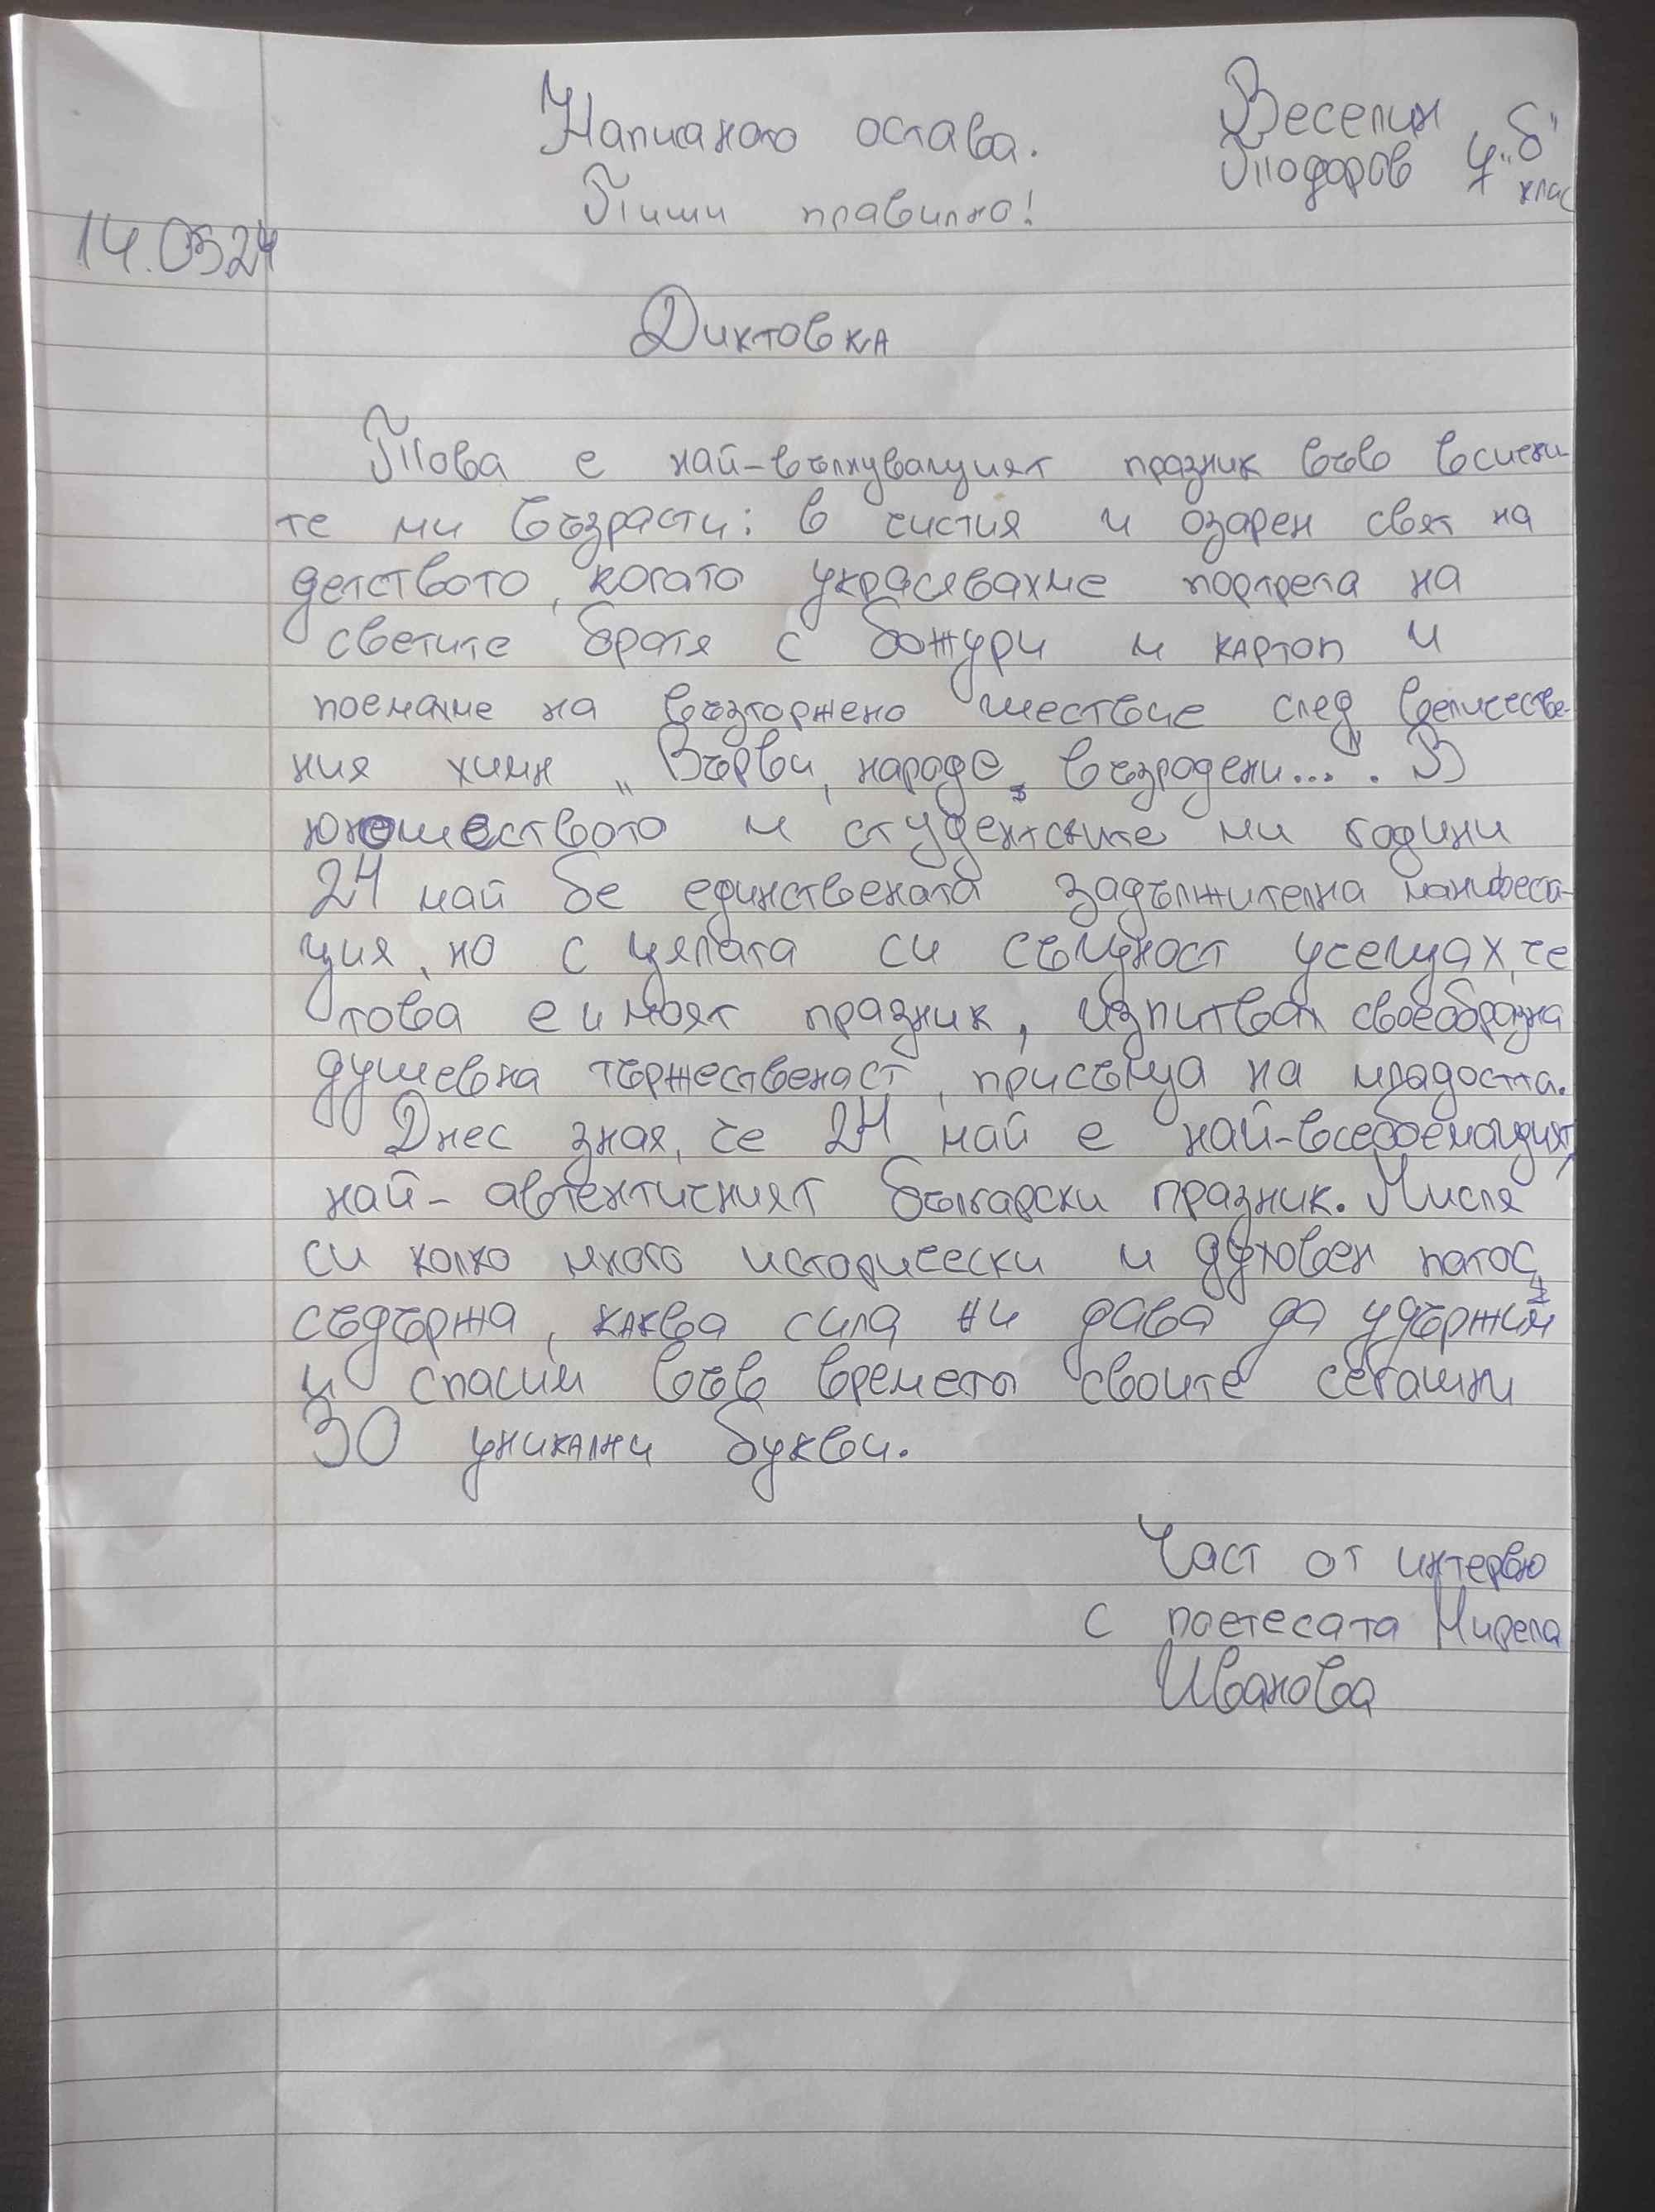 Написаното остава.
Веселин
Тодоров 7 "б"
клас
Пиши правилно!
14.0524
Диктовка
Това е най-вълнуващият празник във всички-
те ми възрасти: в чистия и озарен свят на
детството, когато украсявахме портрета на
светите братя с божури и картоп и
поемахме на възторжено шествие след величестве-
ния химн „Върви, народе, възродени...". В
юношеството и студентските ми години
24 май бе единствената задължителна манифеста-
ция, но с цялата си същност усещах, че
това е и моят празник, изпитвах своеобразна
душевна тържественаст, присъща на младостта.
Днес зная, че 24 май е най-всеобемащият,
най-автентичният български празник. Мисля
си колко много исторически и духовен патос
съдържа, каква сила ни дава да удържим
и спасим във времето своите сегашни
30 уникални букви.
Част от интервю
с поетесата Мирела
Иванова